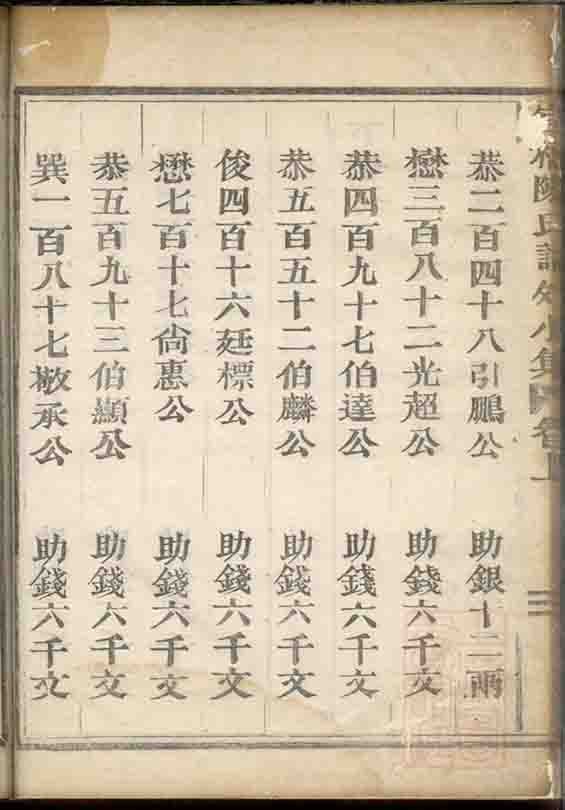 陳氏譜外小集 卷上
恭二百四十八引鵬公 助銀十二兩
懋三百八十二光超公 助錢六千文
恭四百九十七伯達公 助錢六千文
恭五百五十二伯麟公 助錢六千文
俊四百十六廷標公 助錢六千文
懋七百十七尙惠公 助錢六千文
恭五百九十三伯顯公 助錢六千文
巽一百八十七敬承公 助錢六千文